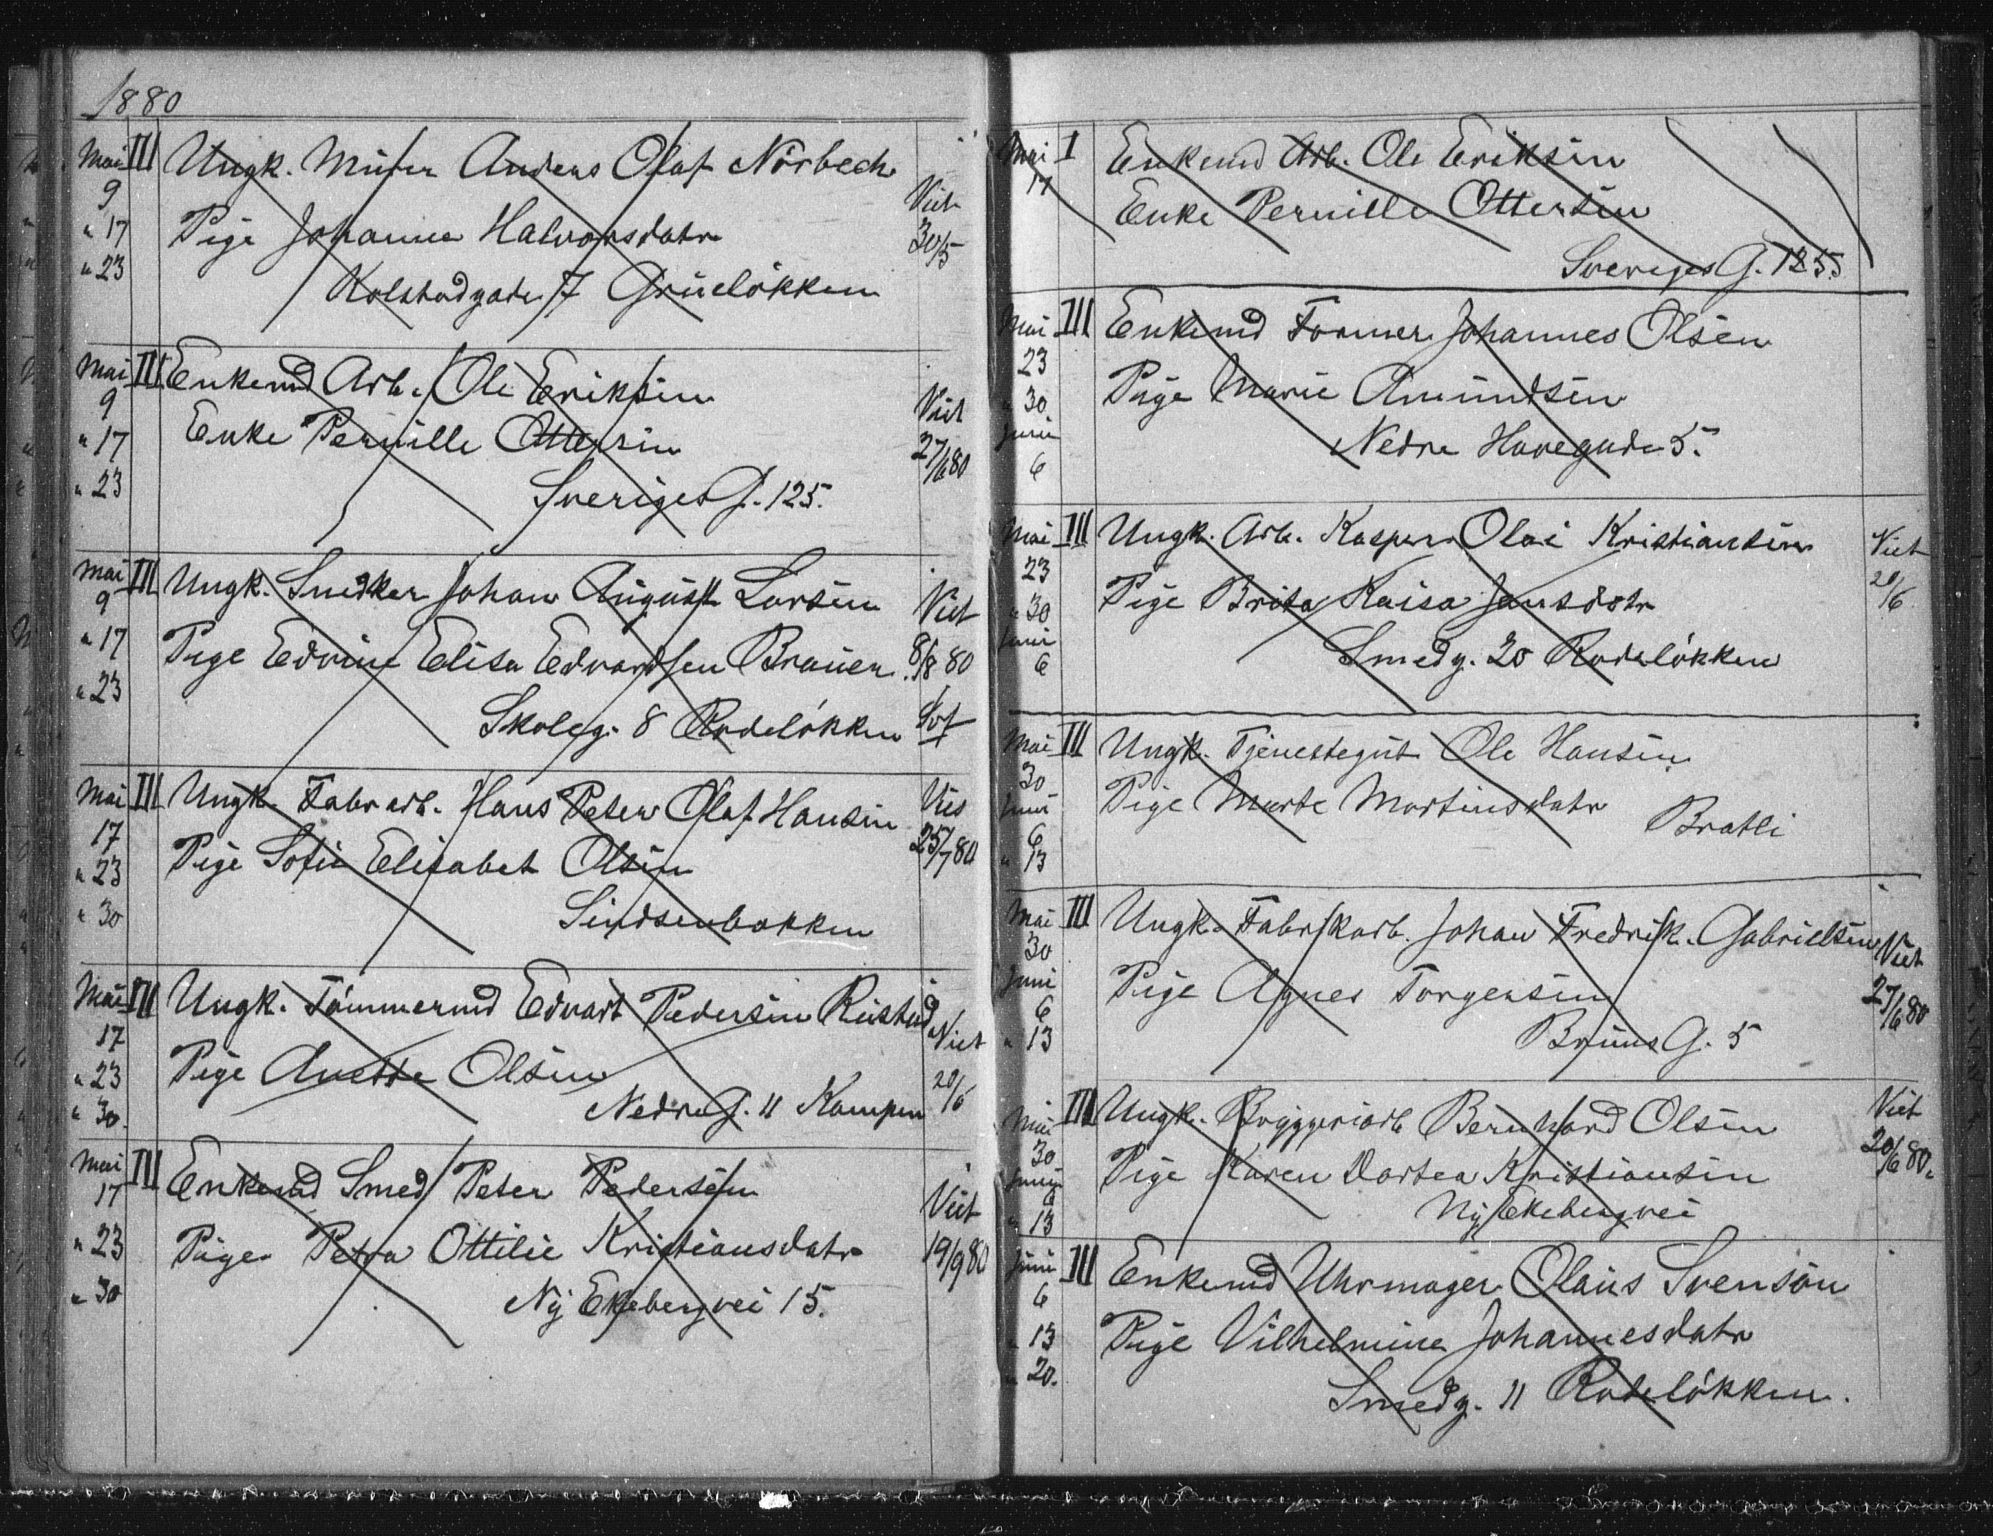 1880
Mai III Ungk. Murer Anders Olaf Nörbech
9
" 17 Pige Johanne Halvorsdatr Viet 30/5
" 23 Kolstadgade 7 Grüneløkken
Mai III Enkemd Arb. Ole Eriksen
9 Enke Pernille Ottersen Viet
" 17 27/6 80
" 23 Sveriges G. 125.
Mai III Ungk. Snedker Johan August Larsen Viet
9
" 17 Pige Edvine Elisa Edvardsen Brauer. 8/8 80
" 23 Skoleg. 8 Rodeløkken
Mai III Ungk. Fabrarb. Hans Peter Olaf Hansen Vies
17 25/7 80
" 23 Pige Sofie Elisabet Olsen
" 30 Sindsenbakken
Mai III Ungk. Tömmermd Edvart Pedersen Rustad
17 Viet
" 23 Pige Anette Olsen 20/6
" 30. Nedre G. 11 Kampen
Mai III Enkemd Smed Peter Pedersen
17 Viet
" 23 Pige Petra Ottilie Kristiansdatr 19/9 80
" 30 Ny Ekebergvei 15.
Mai I Enkemd Arb. Ole Eriksen
17 Enke Pernille Ottersen
Sveriges G. 125.
Mai III Enkemd Former Johannes Olsen
23
" 30. Pige Marie Amundsen
Juni
6 Nedre Havegade 5.
Mai III Ungk. Arb. Kasper Olai Kristiansen Viet
23 20/6
" 30 Pige Brita Kaisa Jansdotr
Juni
6 Smedg. 20 Rodeløkken
Mai III Ungk. Tjenestegut Ole Hansen
30
Juni Pige Marte Martinsdatr
6 Bratli
" 13
Mai III Ungk. Fabrikarb. Johan Fredrik. Gabrielsen Viet
30
Juni Pige Agnes Torgersen 27/6 80
6
" 13 Bruns G. 5
Mai III Ungk. Bryggeriarb Bernhard Olsen Viet
30 20/6 80.
Juni Pige Karen Dortea Kristiansen
6
" 13 Ny Ekebergvei
Juni III Enkemd Uhrmager Olaus Svensön
6
" 13 Pige Vilhelmine Johannesdatr
" 20. Smedg. 11 Rodeløkken.